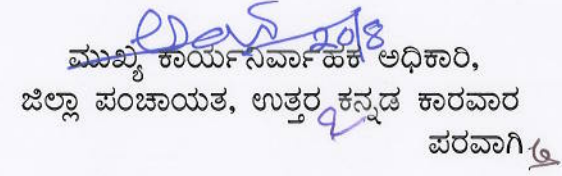 ಮುಖ್ಯ ಕಾರ್ಯನಿರ್ವಾಹಕ ಅಧಿಕಾರಿ,
ಜಿಲ್ಲಾ ಪಂಚಾಯತ, ಉತ್ತರ ಕನ್ನಡ ಕಾರವಾರ
ಪರವಾಗಿ